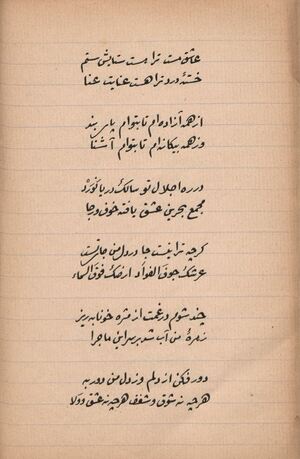 عاشق مست ترا هست ستایش ستم
خستهٔ درد ترا هست عنایت عنا
از همه آزاده‌ام تا بتوام پای بند
وز همه بیگانه‌ام تا بتوام آشنا
در ره اجلال تو سالک دریا نورد
مجمع بحرین عشق یافته خوف و رجا
گرچه ترا نیست جا در دل من جای تست
عرشک جوف الفؤاد ارضک فوق السماء
چند شوم در غمت از مژه خونابه ریز
زهرهٔ من آب شد بر سر این ماجرا
دور فکن از دلم وز دل من دور به
هرچه نه شوق و شغف هرچه نه عشق و ولا